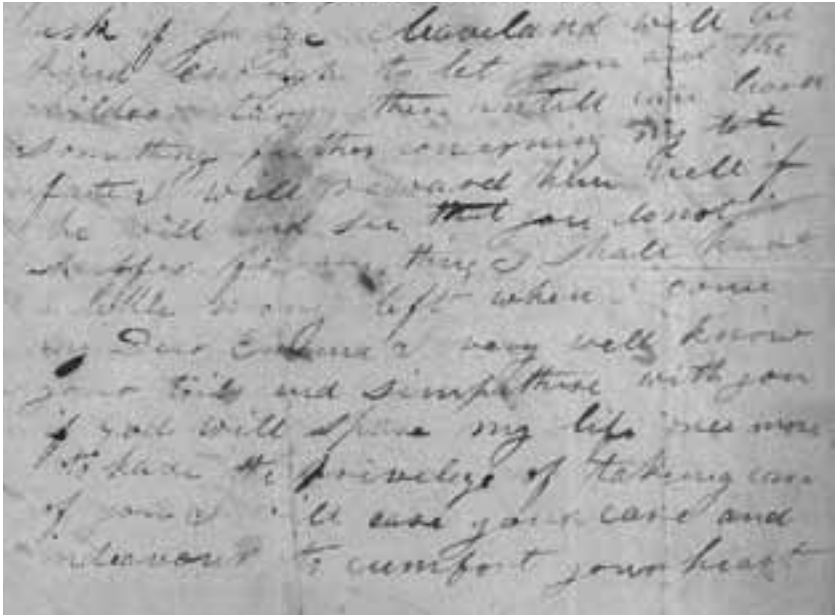 ask if judge cleaveland will be
kind enough to let you and the
children tarry there untill can learn
something further concerning my lot
fate I will reward him well if
he will and see that you do not
suffer for any thing I shall have
a little mony left when I come
my Dear Emma I very well know
your toils and simpathise with you
if god will spare my life once more
to have the privelege of takeing care
of you I will ease your care and
indeavour to cumfort your heart